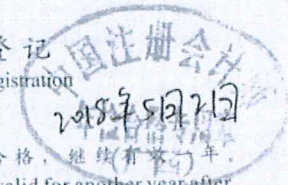 登记
gistration
国注册会计
2018年5月21日
合格，继续有效一年。
valid for another year after